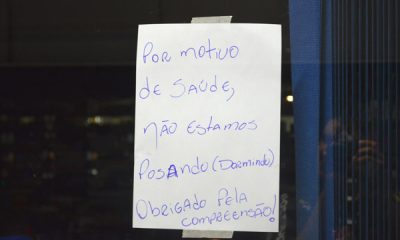 POR MOTIVO
DE SAÚDE,
NÃO ESTAMOS
POSANDO (DORMINDO)
OBRIGADO PELA
COMPREENSÃO!